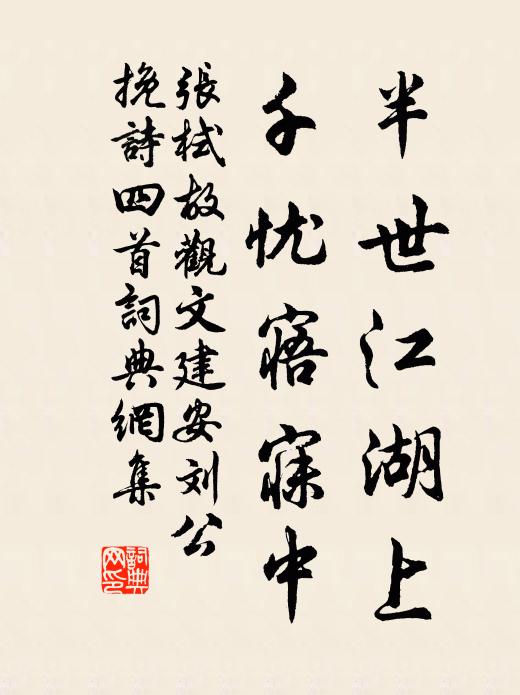 半世江湖上
千忧寤寐中
張栻故觀文建安刘公
挽詩四首詞典網集
詞典网印